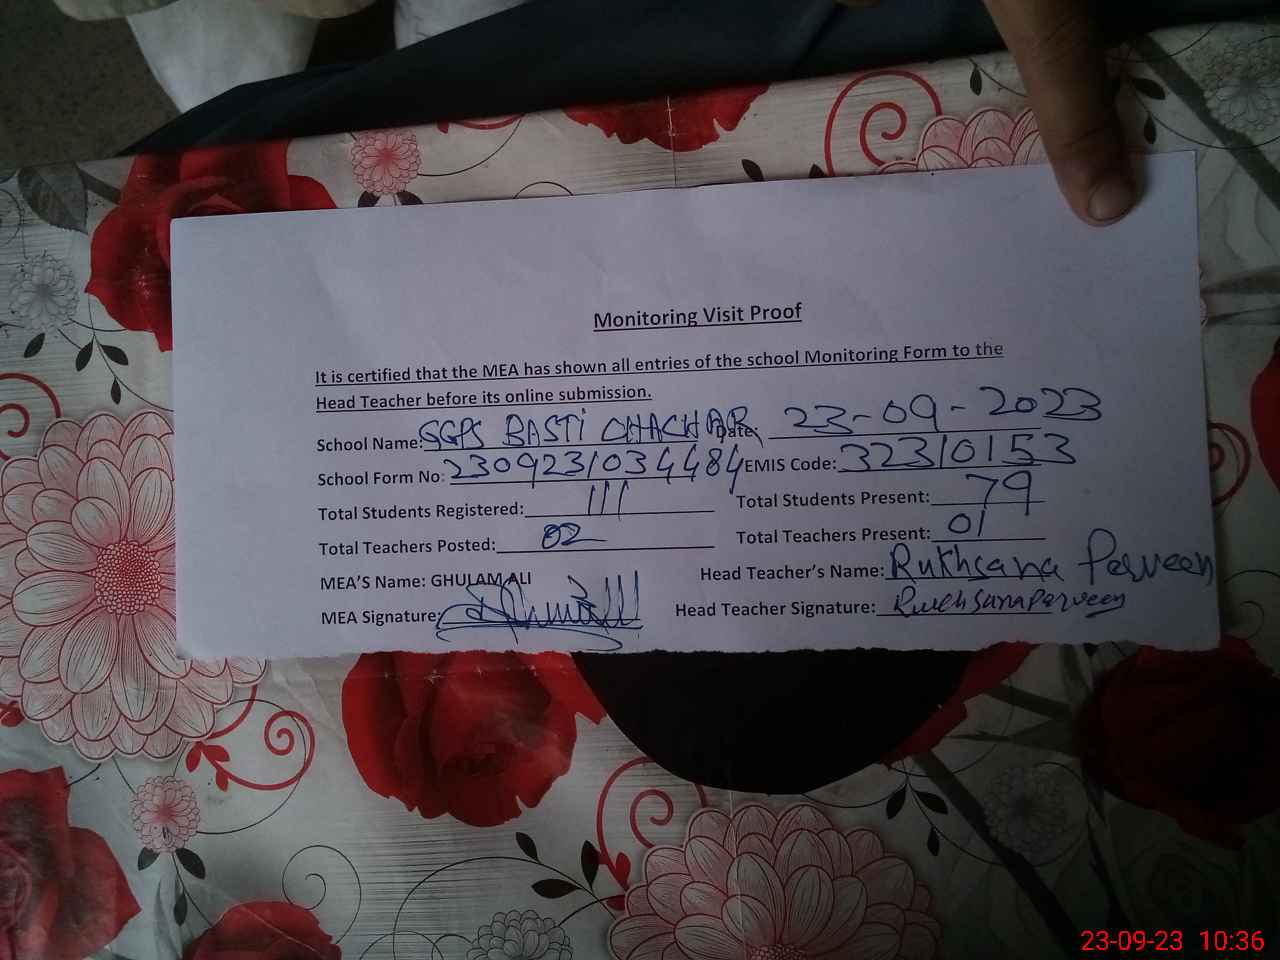 Monitoring Visit Proof
It is certified that the MEA has shown all entries of the school Monitoring Form to the
Head Teacher before its online submission.
School Name: SGPS BASTI CHACHAR Date: 23-09-2023
School Form No: 230923/034484 EMIS Code: 32310153
Total Students Registered: 111 Total Students Present: 79
Total Teachers Posted: 02 Total Teachers Present: 01
MEA'S Name: GHULAM ALI Head Teacher's Name: Rukhsana Perveen
MEA Signature: Head Teacher Signature: Rukhsana Perveen
23-09-23 10:36